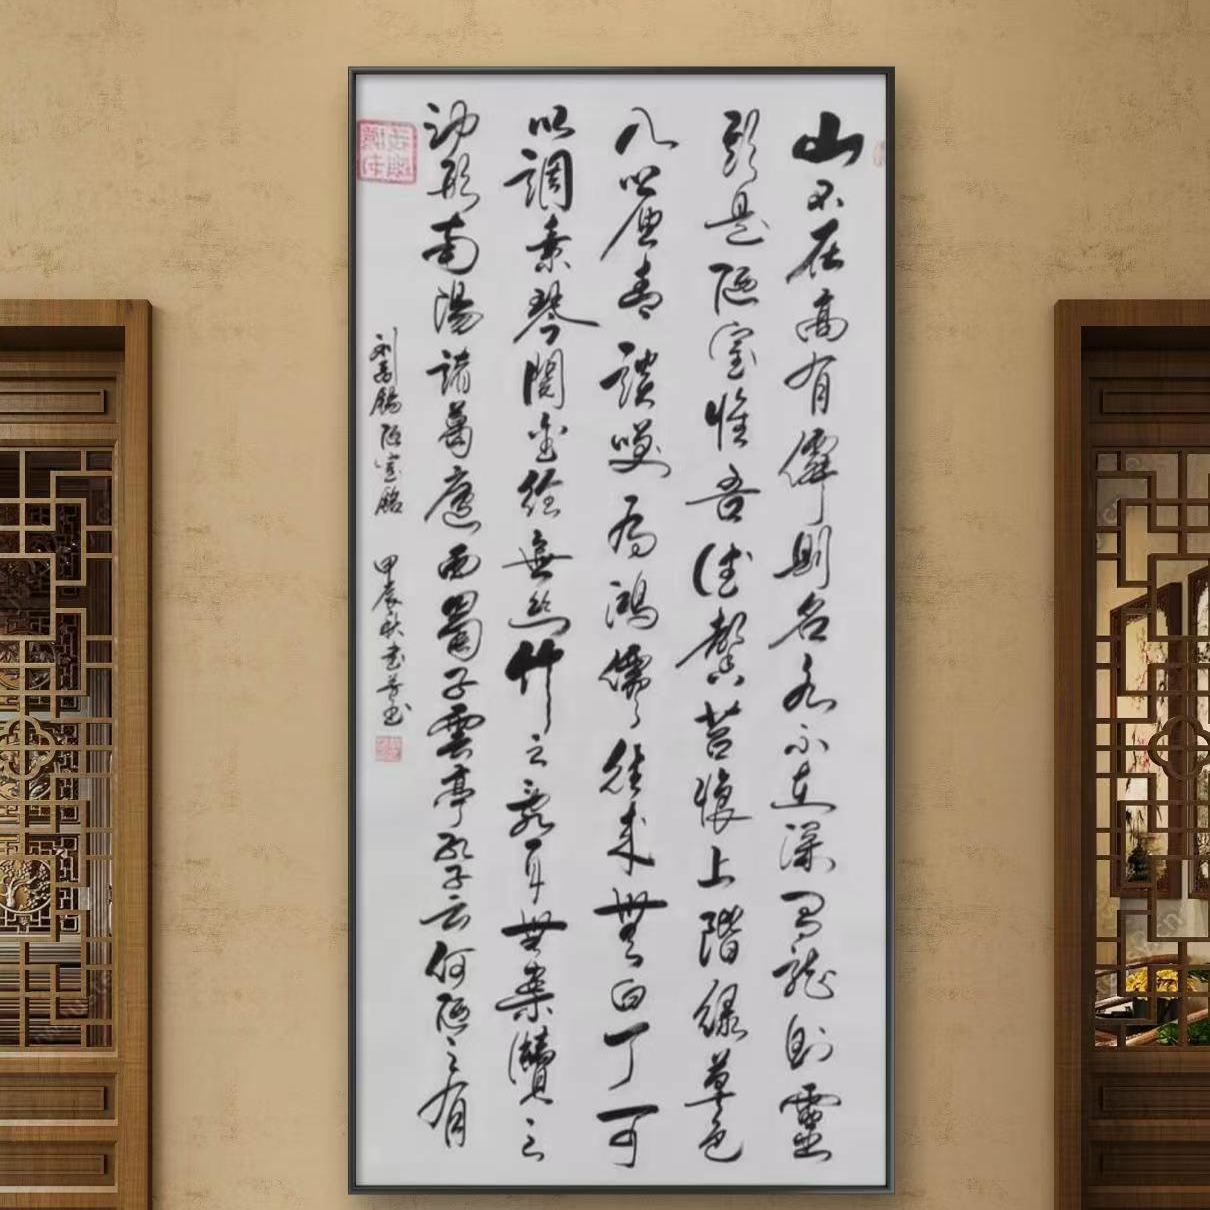 山不在高有僊則名水不在深有龍則靈
斯是陋室惟吾德馨苔痕上階綠草色
入簾青談笑有鴻儒往來無白丁可
以調素琴閱金經無絲竹之亂耳無案牘之
勞形南陽諸葛廬西蜀子雲亭孔子云何陋之有
刘禹錫陋室銘 甲辰秋